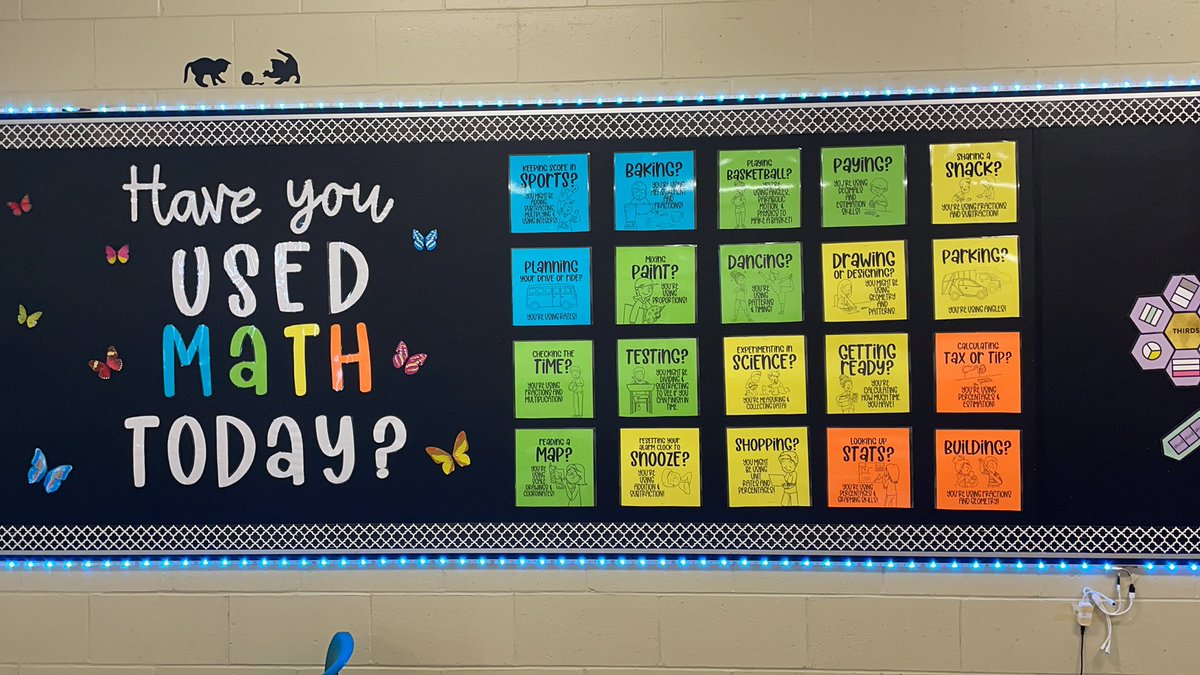 Have you
USED
MATH
TODAY?
KEEPING SCORE IN
SPORTS?
YOU MIGHT BE
ADDING,
SUBTRACTING,
MULTIPLYING &
USING INTEGERS!
BAKING?
YOU'RE USING
MEASUREMENT
AND
FRACTIONS!
PLAYING
BASKETBALL?
YOU'RE USING
ANGLES,
PARABOLIC
MOTION, &
PHYSICS TO
MAKE A BASKET!
PAYING?
YOU'RE USING
DECIMALS
AND
ESTIMATION
SKILLS!
SHARING A
SNACK?
YOU'RE USING FRACTIONS
AND SUBTRACTION!
PLANNING
YOUR DRIVE OR RIDE?
YOU'RE USING RATES!
MIXING
PAINT?
YOU'RE
USING
PROPORTIONS!
DANCING?
YOU'RE
USING
PATTERNS
& TIMING!
DRAWING
OR DESIGNING?
YOU MIGHT BE
USING
GEOMETRY
AND
PATTERNS!
PARKING?
YOU'RE USING ANGLES!
CHECKING THE
TIME?
YOU'RE USING
FRACTIONS AND
MULTIPLICATION!
TESTING?
YOU MIGHT BE
DIVIDING &
SUBTRACTING
TO SEE IF YOU
CAN FINISH IN
TIME
EXPERIMENTING IN
SCIENCE?
YOU'RE MEASURING &
COLLECTING DATA!
GETTING
READY?
YOU'RE
CALCULATING
HOW MUCH TIME
YOU HAVE!
CALCULATING
TAX OR TIP?
YOU'RE USING
PERCENTAGES &
ESTIMATION!
READING A
MAP?
YOU'RE
USING
SCALE
DRAWINGS &
COORDINATES!
RESETTING YOUR
ALARM CLOCK TO
SNOOZE?
YOU'RE
USING
ADDITION &
SUBTRACTION!
SHOPPING?
YOU MIGHT BE
USING
UNIT
RATES AND
PERCENTAGES!
LOOKING UP
STATS?
YOU'RE USING
PERCENTAGES &
GRAPHING SKILLS!
BUILDING?
YOU'RE USING FRACTIONS
AND GEOMETRY!
THIRDS